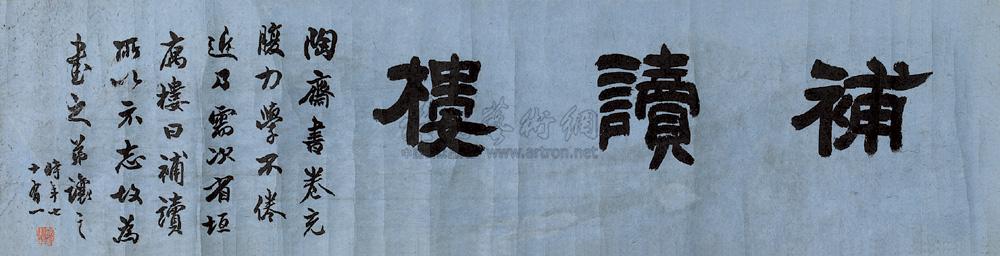 補讀樓
陶齋書卷充
腹力學不倦
近乃需次省垣
寓樓曰補讀
所以示志故為
書之 弟讓之
時年七
十有一
藝術網
www.artron.net